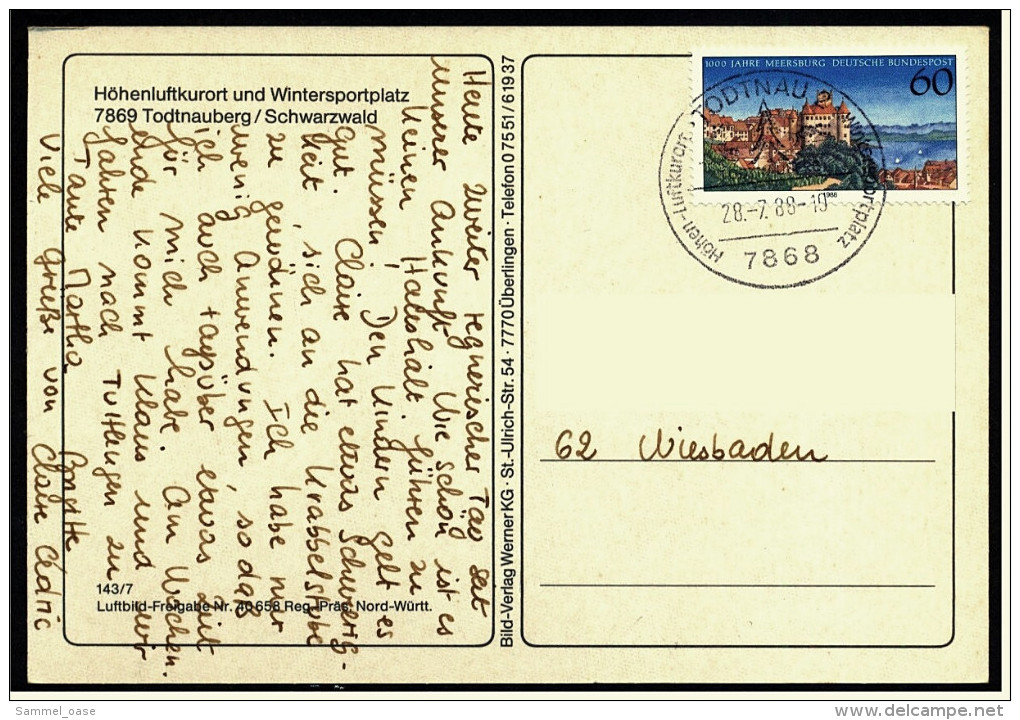 Höhenluftkurort und Wintersportplatz
7869 Todtnauberg / Schwarzwald
Heute zweiter regnerischer Tag seit
unserer Ankunft. Wie schön ist es
keinen Haushalt führen zu
müssen! Den Kindern gelt es
gut. Claire hat etwas Schwierig-
keit, sich an die Krabbelstube
zu gewöhnen. Ich habe nur
wenig Anwendungen, so daß
ich auch tagsüber etwas Zeit
für mich habe. Am Wochen-
ende kommt Klaus und wir
fahren nach Tuttlingen zu
Tante Martha.
Viele Grüße von Claire Cédric
143/7
Luftbild-Freigabe Nr. 40 658 Reg. Präs. Nord-Württ.
Bild-Verlag Werner KG · St.-Ulrich-Str. 54 · 7770 Überlingen · Telefon 0 75 51 / 6 19 37
1000 JAHRE MEERSBURG DEUTSCHE BUNDESPOST
60
1988
TODTNAU
Höhen-Luftkurort
Wintersportplatz
28.-7.88-10
7868
62 Wiesbaden
Sammel_oase
delcampe.net